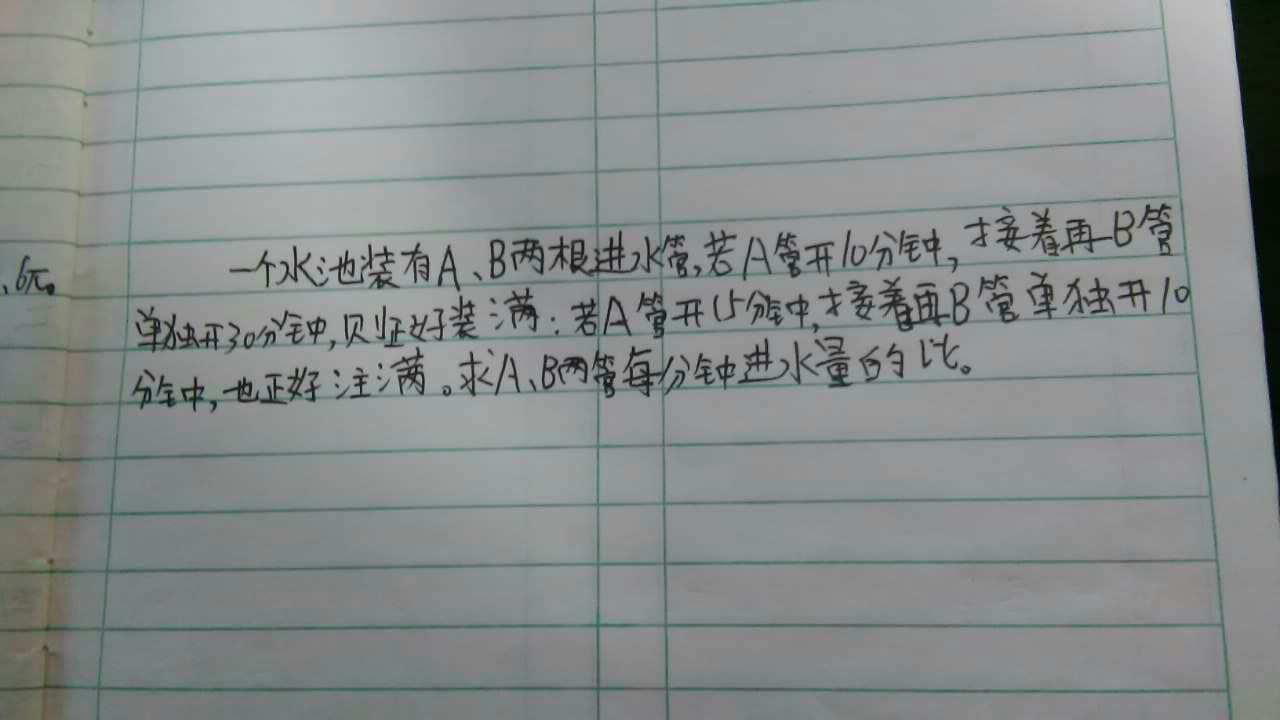 一个水池装有A、B两根进水管,若A管开10分钟,接着再B管
、6元。
单独开30分钟,则正好装满;若A管开15分钟,接着再B管单独开10
分钟,也正好注满。求A、B两管每分钟进水量的比。